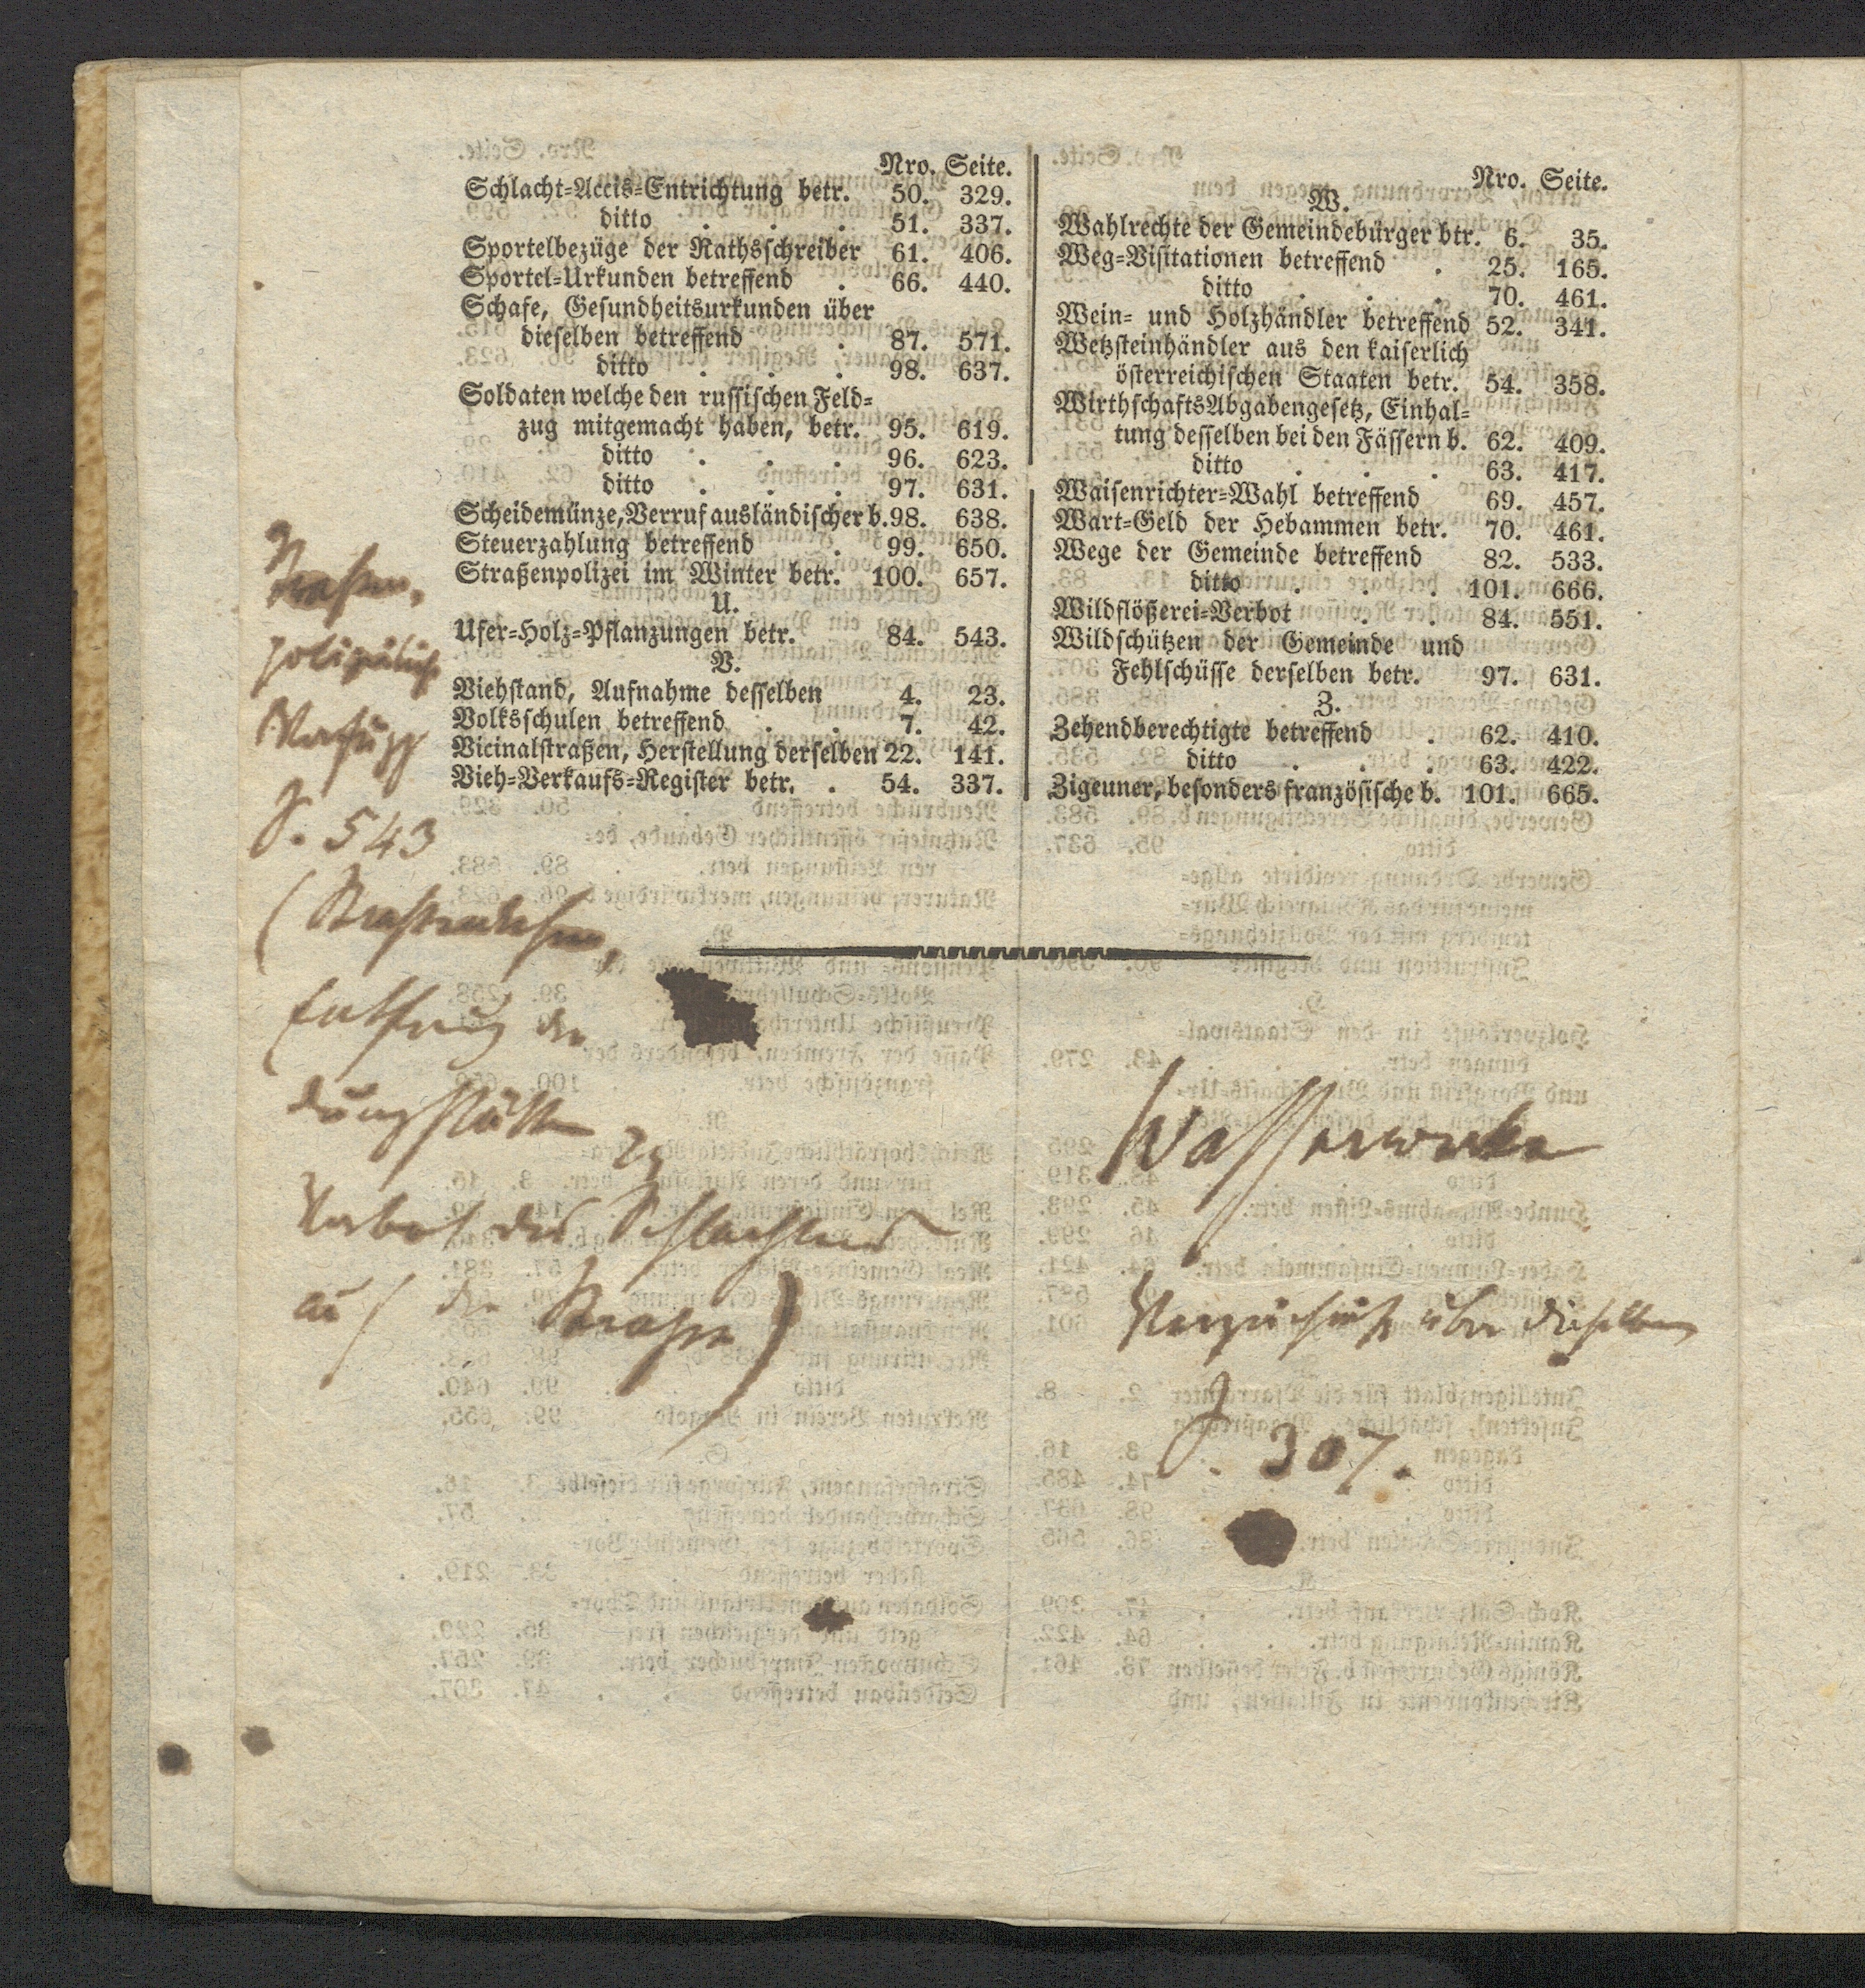 Nro. Seite.
Schlacht-Accis-Entrichtung betr. 50. 329.
ditto . . . 51. 337.
Sportelbezüge der Rathsschreiber 61. 406.
Sportel-Urkunden betreffend . 66. 440.
Schafe, Gesundheitsurkunden über
dieselben betreffend . 87. 571.
ditto . . . 98. 637.
Soldaten welche den russischen Feld-
zug mitgemacht haben, betr. 95. 619.
ditto . . . 96. 623.
ditto . . . 97. 631.
Scheidemünze, Verruf ausländischer b. 98. 638.
Steuerzahlung betreffend . 99. 650.
Straßenpolizei im Winter betr. 100. 657.
U.
Ufer-Holz-Pflanzungen betr. 84. 543.
V.
Viehstand, Aufnahme desselben 4. 23.
Volksschulen betreffend . . 7. 42.
Vicinalstraßen, Herstellung derselben 22. 141.
Vieh-Verkaufs-Register betr. . 54. 337.
Straßen,
polizeiliche
S. 543
(
der
Verbot des Schlachtens
auf der Straße)
Nro. Seite.
W.
Wahlrechte der Gemeindebürger btr. 6. 35.
Weg-Visitationen betreffend . 25. 165.
ditto . . . 70. 461.
Wein- und Holzhändler betreffend 52. 341.
Wetzsteinhändler aus den kaiserlich
österreichischen Staaten betr. 54. 358.
WirthschaftsAbgabengesetz, Einhal-
tung desselben bei den Fässern b. 62. 409.
ditto . . . 63. 417.
Waisenrichter-Wahl betreffend 69. 457.
Wart-Geld der Hebammen betr. 70. 461.
Wege der Gemeinde betreffend 82. 533.
ditto . . . 101. 666.
Wildflößerei-Verbot . . 84. 551.
Wildschützen der Gemeinde und
Fehlschüsse derselben betr. 97. 631.
Z.
Zehendberechtigte betreffend . 62. 410.
ditto . . . 63. 422.
Zigeuner, besonders französische b. 101. 665.
Wasserwerke
Verzeichniß über dieselben
S. 307.